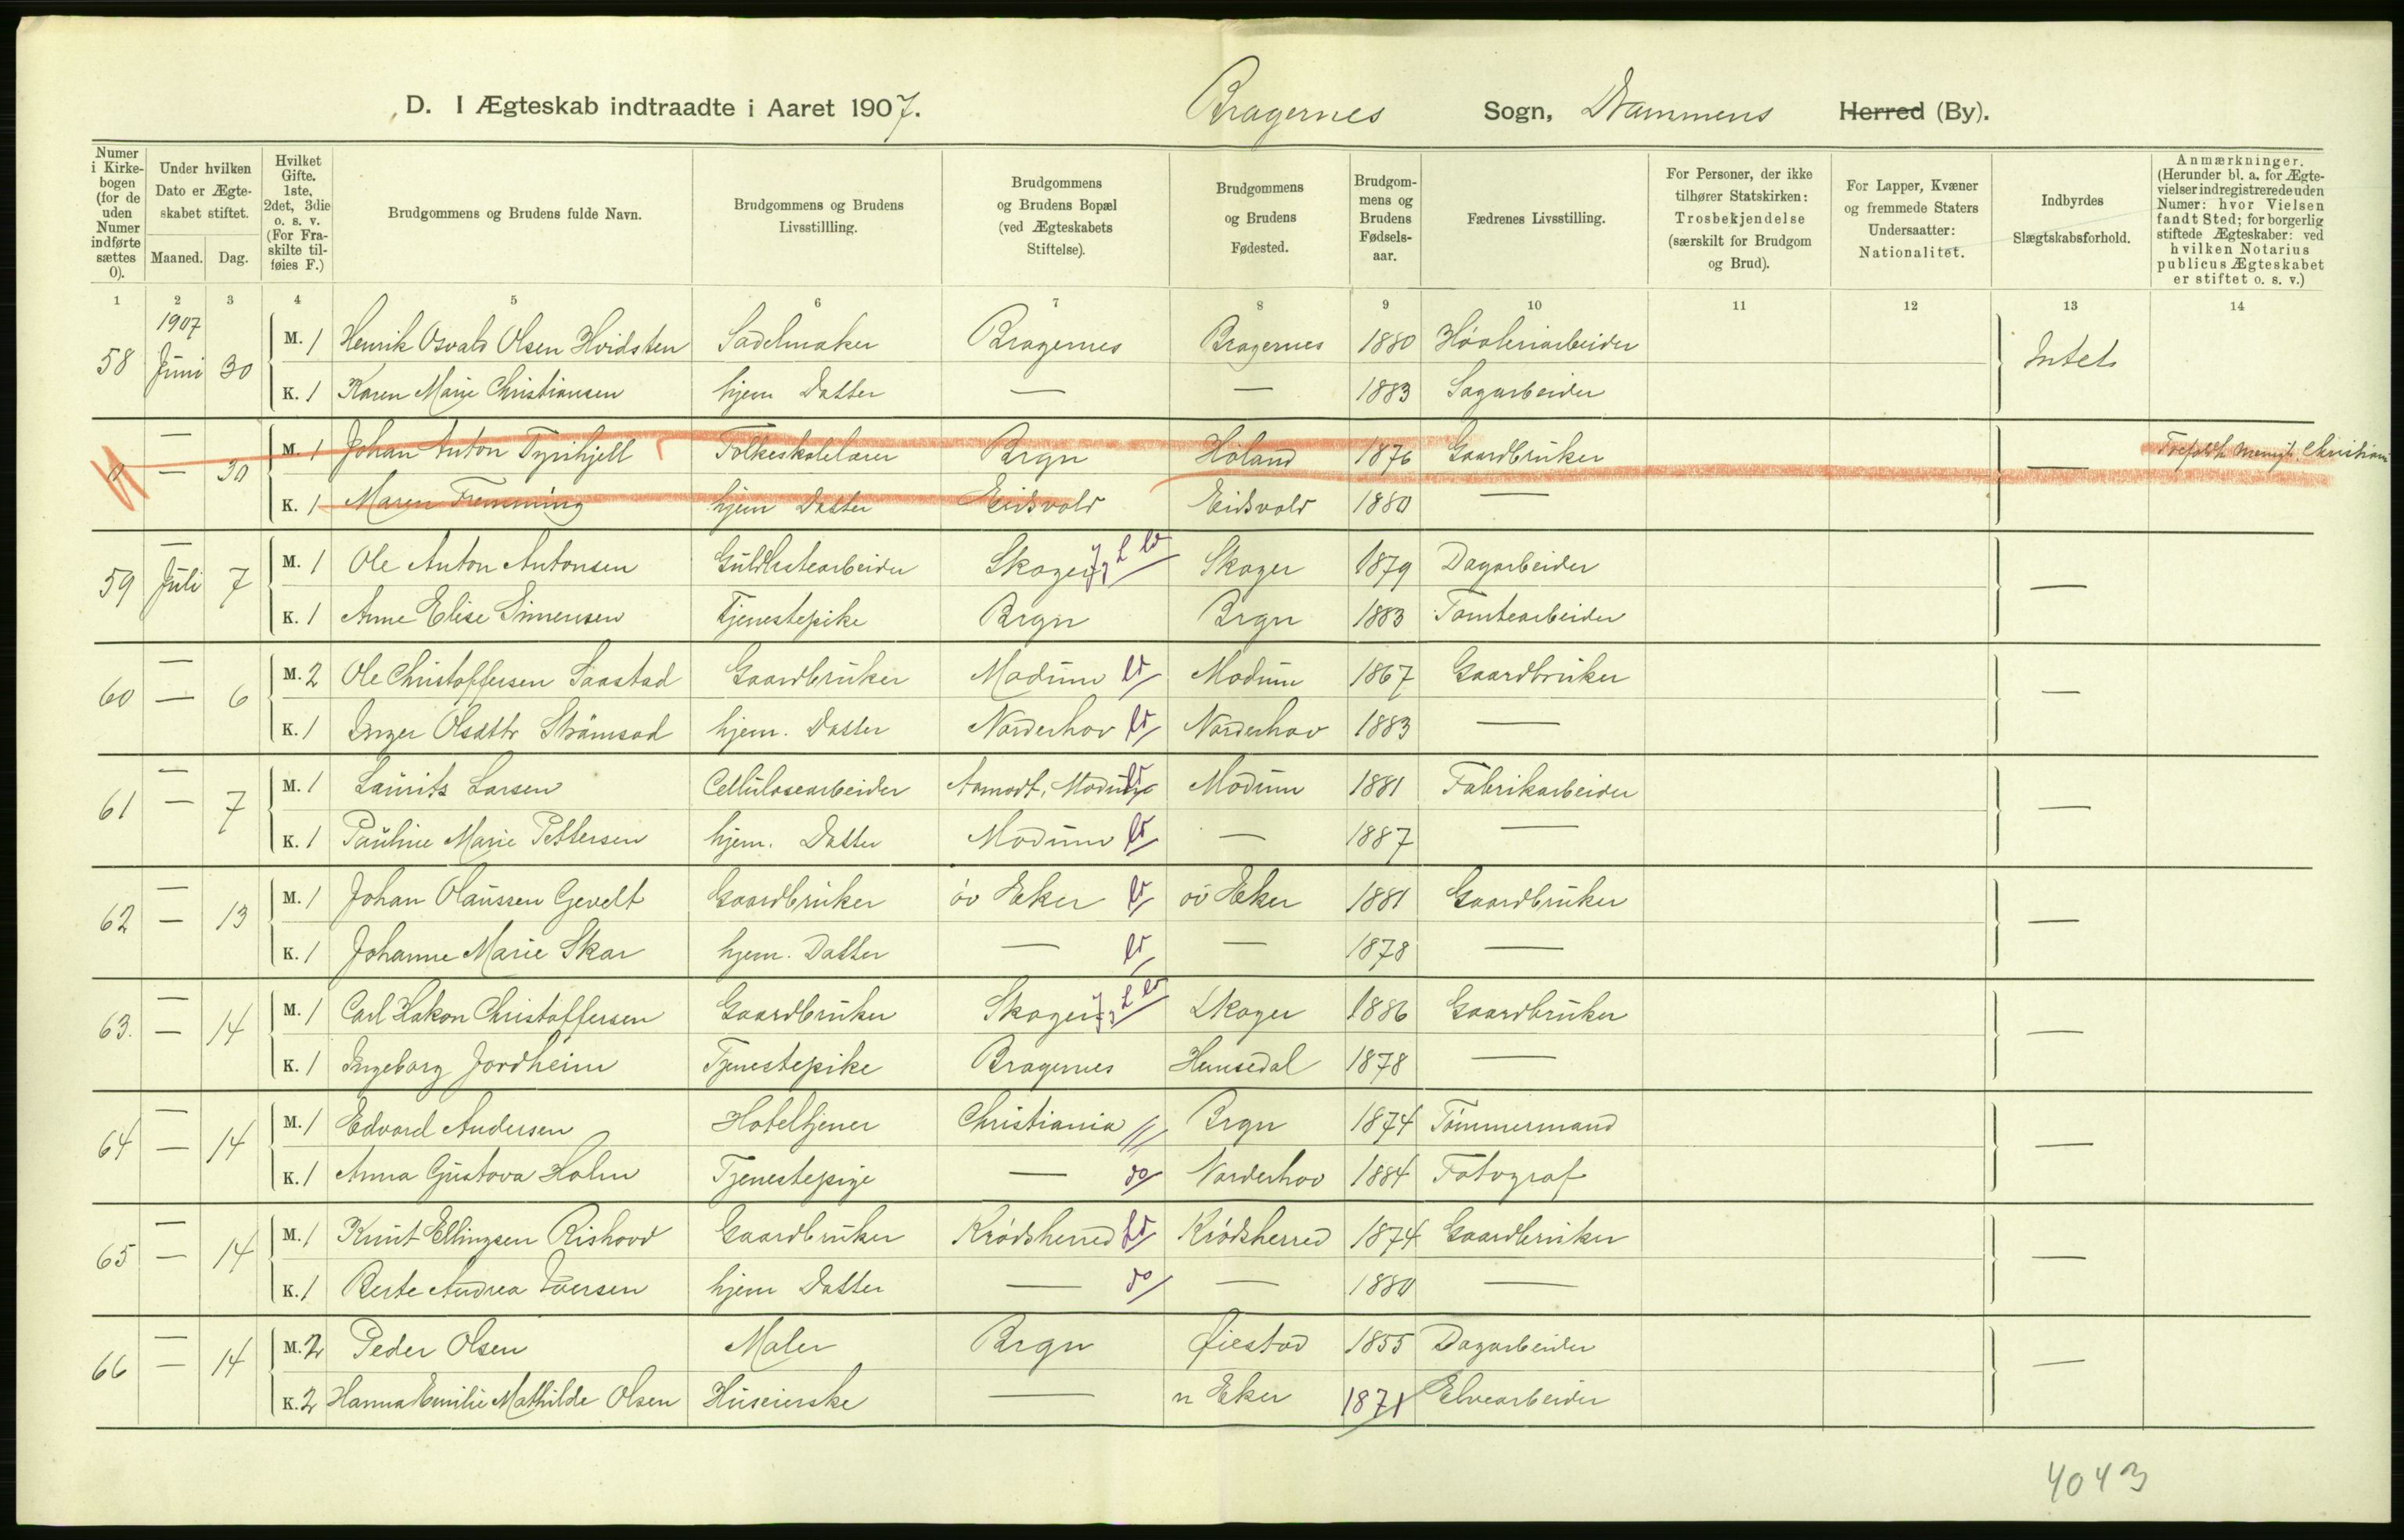 D. I Ægteskab indtraadte i Aaret 1907. Bragernes Sogn, Drammens Herred (By).
Numer i Kirkebogen (for de uden Numer indførte sættes 0).
Under hvilken Dato er Ægteskabet stiftet. Maaned. Dag.
Hvilket Gifte. 1ste, 2det, 3die o. s. v. (For Fraskilte tilføies F.)
Brudgommens og Brudens fulde Navn.
Brudgommens og Brudens Livsstillling.
Brudgommens og Brudens Bopæl (ved Ægteskabets Stiftelse).
Brudgommens og Brudens Fødested.
Brudgommens og Brudens Fødselsaar.
Fædrenes Livsstilling.
For Personer, der ikke tilhører Statskirken: Trosbekjendelse (særskilt for Brudgom og Brud).
For Lapper, Kvæner og fremmede Staters Undersaatter: Nationalitet.
Indbyrdes Slægtskabsforhold.
Anmærkninger. (Herunder bl. a. for Ægtevielser indregistrerede uden Numer: hvor Vielsen fandt Sted; for borgerlig stiftede Ægteskaber: ved hvilken Notarius publicus Ægteskabet er stiftet o. s. v.)
1 2 3 4 5 6 7 8 9 10 11 12 13 14
1907
58 Juni 30 M. 1 Henrik Osvald Olsen Hvidsten Sadelmaker Bragernes Bragernes 1880 Høvleriarbeider Intet
K. 1 Karen Marie Christiansen hjem Datter — — 1883 Sagarbeider
0 — 30 M. 1 Johan Anton Tyrihjell Folkeskolelærer Brgn Høland 1876 Gaardbruker — Trefoldh. menigh. Christiania
K. 1 Maren Fremming hjem Datter Eidsvold Eidsvold 1880 —
59 Juli 7 M. 1 Ole Anton Antonsen Guldlistearbeider Skoger Skoger 1879 Dagarbeider —
K. 1 Anne Elise Simensen Tjenestepike Brgn Brgn 1883 Tomtearbeider
60 — 6 M. 2 Ole Christoffersen Saastad Gaardbruker Modum ld Modum 1867 Gaardbruker —
K. 1 Inger Olsdttr Strömsod hjem. Datter Norderhov ld Norderhov 1883 —
61 — 7 M. 1 Laurits Larsen Cellulosearbeider Aamodt, Modum Modum 1881 Fabrikarbeider —
K. 1 Pauline Marie Pettersen hjem. Datter Modum ld — 1887 —
62 — 13 M. 1 Johan Olaussen Gevelt Gaardbruker öv Eker ld öv Eker 1881 Gaardbruker —
K. 1 Johanne Marie Skar hjem. Datter — ld — 1878 —
63. — 14 M. 1 Carl Hakon Christoffersen Gaardbruker Skoger Skoger 1886 Gaardbruker —
K. 1 Ingeborg Jordheim Tjenestepike Bragernes Hemsedal 1878 —
64 — 14 M. 1 Edvard Andersen Hoteltjener Christiania Brgn 1874 Tømmermand —
K. 1 Anna Gustava Holm Tjenestepige — do Norderhov 1884 Fotograf
65 — 14 M. 1 Knut Ellingsen Rishovd Gaardbruker Krødsherred ld Krødsherred 1874 Gaardbruker —
K. 1 Berte Andrea Iversen hjem Datter — do — 1880 —
66 — 14 M. 2 Peder Olsen Maler Brgn Øiestad 1855 Dagarbeider —
K. 2 Hanna Emilie Mathilde Olsen Huseierske — n Eker 1871 Elvearbeider
4043